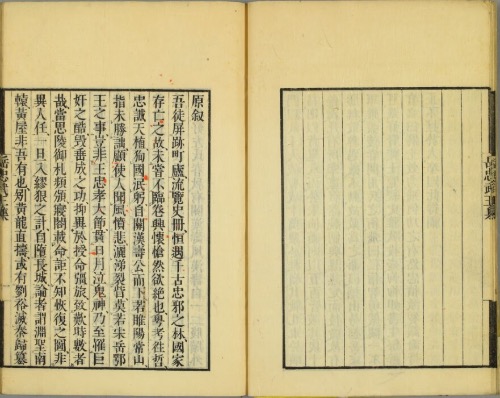 原叙
吾徒屏跡町廬流覽史冊恒遇千古忠邪之林國家
存亡之故未嘗不臨卷興懷愴然欲絶也粤考往哲
忠讖天植殉國泯躬自關漢壽公而下若睢陽常山
指未勝詘顧使人聞風憤悲灑涕裂眥莫若宋岳鄂
王之事豈非王忠孝大節貫日月泣鬼神乃至罹巨
奸之酷毁垂成之功抑異於授命彊旅致歎時數者
哉當思陵御札頻頒窾闕載命詎不知恢復之圖非
異人任一旦入繆狠之計自隳長城論者謂淵聖南
轅黃屋非吾有也别黃龍直擣或有劉裕滅秦歸篡
岳忠武王集
岳忠武王集